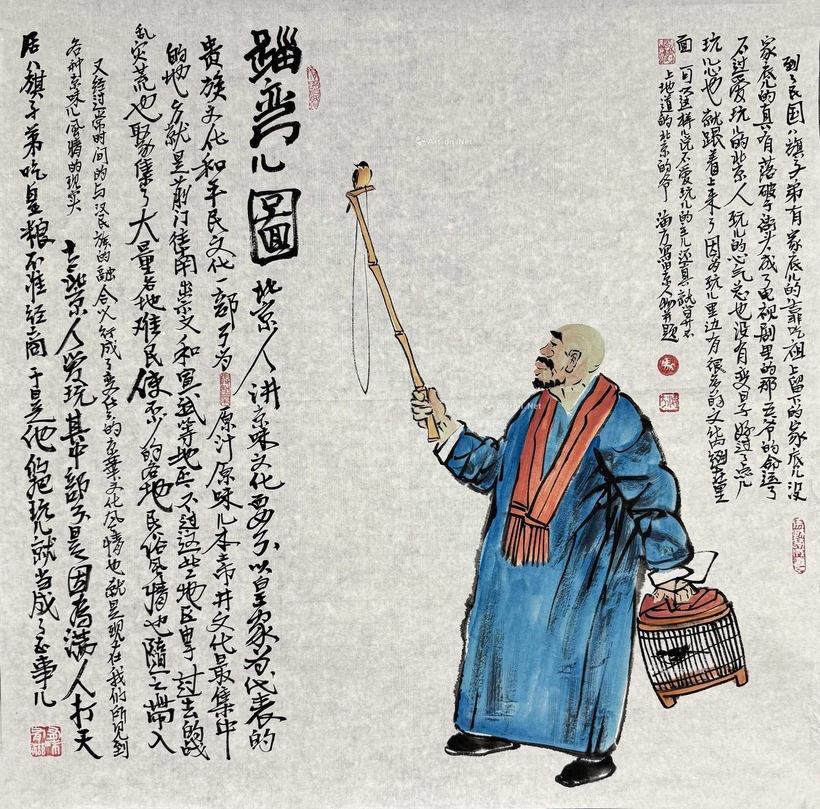 蹓弯儿图
北京人讲京味文化要分以皇家为代表的
贵族文化和平民文化一部分为原汁原味儿本市井文化最集中
的地方就是前门往南崇文和宣武等地区不过这些地区过去的战
乱灾荒也聚集了大量各地难民使京人的各地民俗风情也随之带入
又经过时间的与汉民族的融合行成了的京华文化风情也就是现在我们所见到
各种京味儿风情的现实
北京人爱玩其中部分是因为满人打天
居八旗子弟吃皇粮不准经商于是他们把玩儿就当成了正事儿
到了民国八旗子弟有家底儿的靠吃祖上留下的家底儿没
家底儿的真有落破于街头成了电视剧里的那五爷的命运了
不过爱玩儿的北京人玩儿的心气总也没有变日子好过了点儿
玩儿心也就跟着上来了因为玩儿里边有很多的文化在里
面可以这样儿说不爱玩儿的主儿还真就算不
上地道的北京的爷